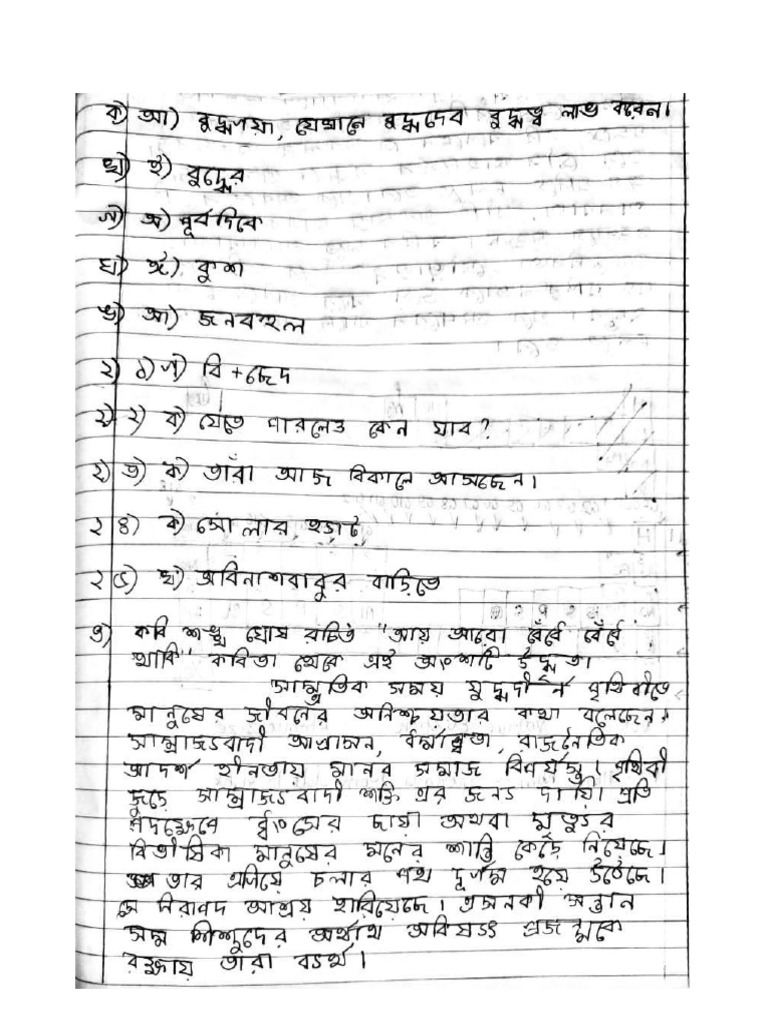 ক) আ) বুদ্ধগয়া, যেখানে বুদ্ধদেব বুদ্ধত্ব লাভ করেন।
খ) ই) বুদ্ধের
গ) অ) পূর্বদিকে
ঘ) ঈ) কুশ
ঙ) আ) জনবহুল
২) ১) গ) বি + ছেদ
২) ২) ক) যেতে পারলেও কেন যাব?
২) ৩) ক) তাঁরা আজ বিকালে আসছেন।
২ ৪) ক) সোলার হ্যাট
২ ৫) খ) অবিনাশবাবুর বাড়িতে
৩) কবি শঙ্খ ঘোষ রচিত "আয় আরো বেঁধে বেঁধে
থাকি" কবিতা থেকে এই অংশটি উদ্ধৃত।
সাম্প্রতিক সময় যুদ্ধদীর্ন পৃথিবীতে
মানুষের জীবনের অনিশ্চয়তার কথা বলেছেন।
সাম্রাজ্যবাদী আগ্রাসন, ধর্মান্ধতা, রাজনৈতিক
আদর্শ হীনতায় মানব সমাজ বিপর্যস্ত। পৃথিবী
জুড়ে সাম্রাজ্যবাদী শক্তি এর জন্য দায়ি। প্রতি
পদক্ষেপে ধ্বংসের ছায়া অথবা মৃত্যুর
বিভীষিকা মানুষের মনের শান্তি কেড়ে নিয়েছে।
তার এগিয়ে চলার পথ দূর্গম হয়ে উঠেছে।
সে নিরাপদ আশ্রয় হারিয়েছে। এমনকী সন্তান
সম শিশুদের অর্থাথ ভবিষ্যৎ প্রজন্মকে
রক্ষায় তারা ব্যর্থ।